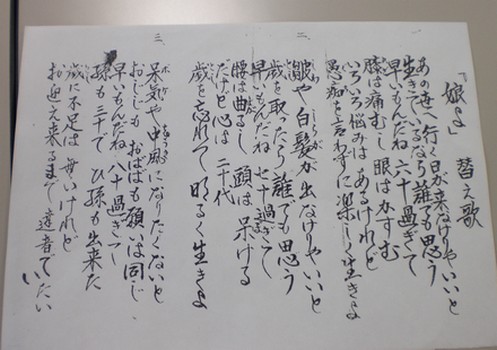 「娘よ」 替え歌
あの世へ行く日が来なけりゃいいと
生きているなら誰でも思う
早いもんだね 六十過ぎて
膝は痛むし 眼はかすむ
いろいろ悩みは あるけれど
愚痴を言わずに楽しく生きよ
二
皺や白髪が出なけりゃいいと
歳を取ったら誰でも思う
早いもんだね 七十過ぎて
腰は曲るし 頭は呆ける
だけど心は 二十代
歳を忘れて 明るく生きよ
三
呆気や中風になりたくないと
おじじも おばばも願いは同じ
早いもんだね 八十過ぎて
孫も三十で ひ孫も出来た
歳に不足は 無いけれど
お迎え来るまで 達者でいたい